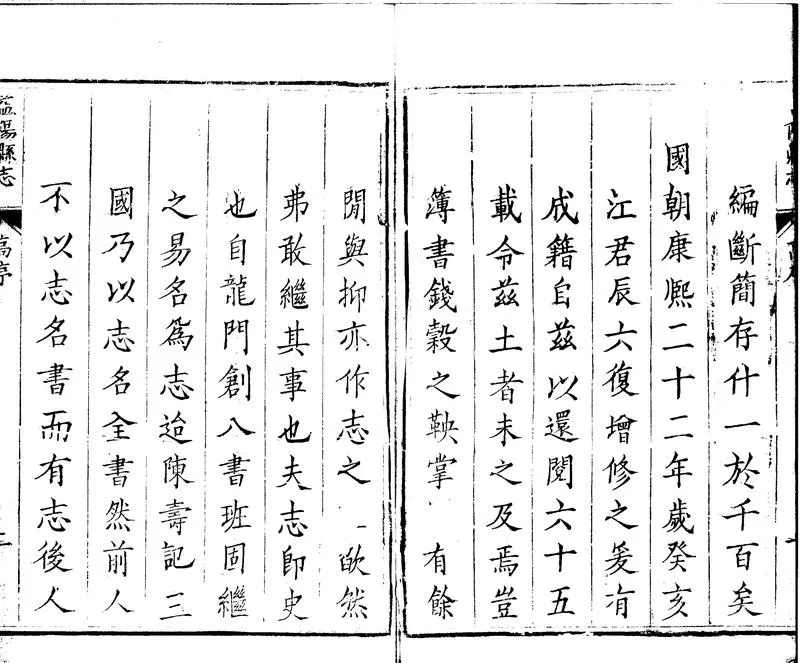 編斷簡存什一於千百矣
國朝康熙二十二年歲癸亥
江君辰六復增修之爰有
成籍自兹以還閱六十五
載令兹土者未之及焉豈
簿書錢穀之鞅掌 有餘
閒與抑亦作志之 欿然
弗敢繼其事也夫志卽史
也自龍門創八書班固繼
之易名爲志迨陳壽記三
國乃以志名全書然前人
不以志名書而有志後人
益陽縣志 高序